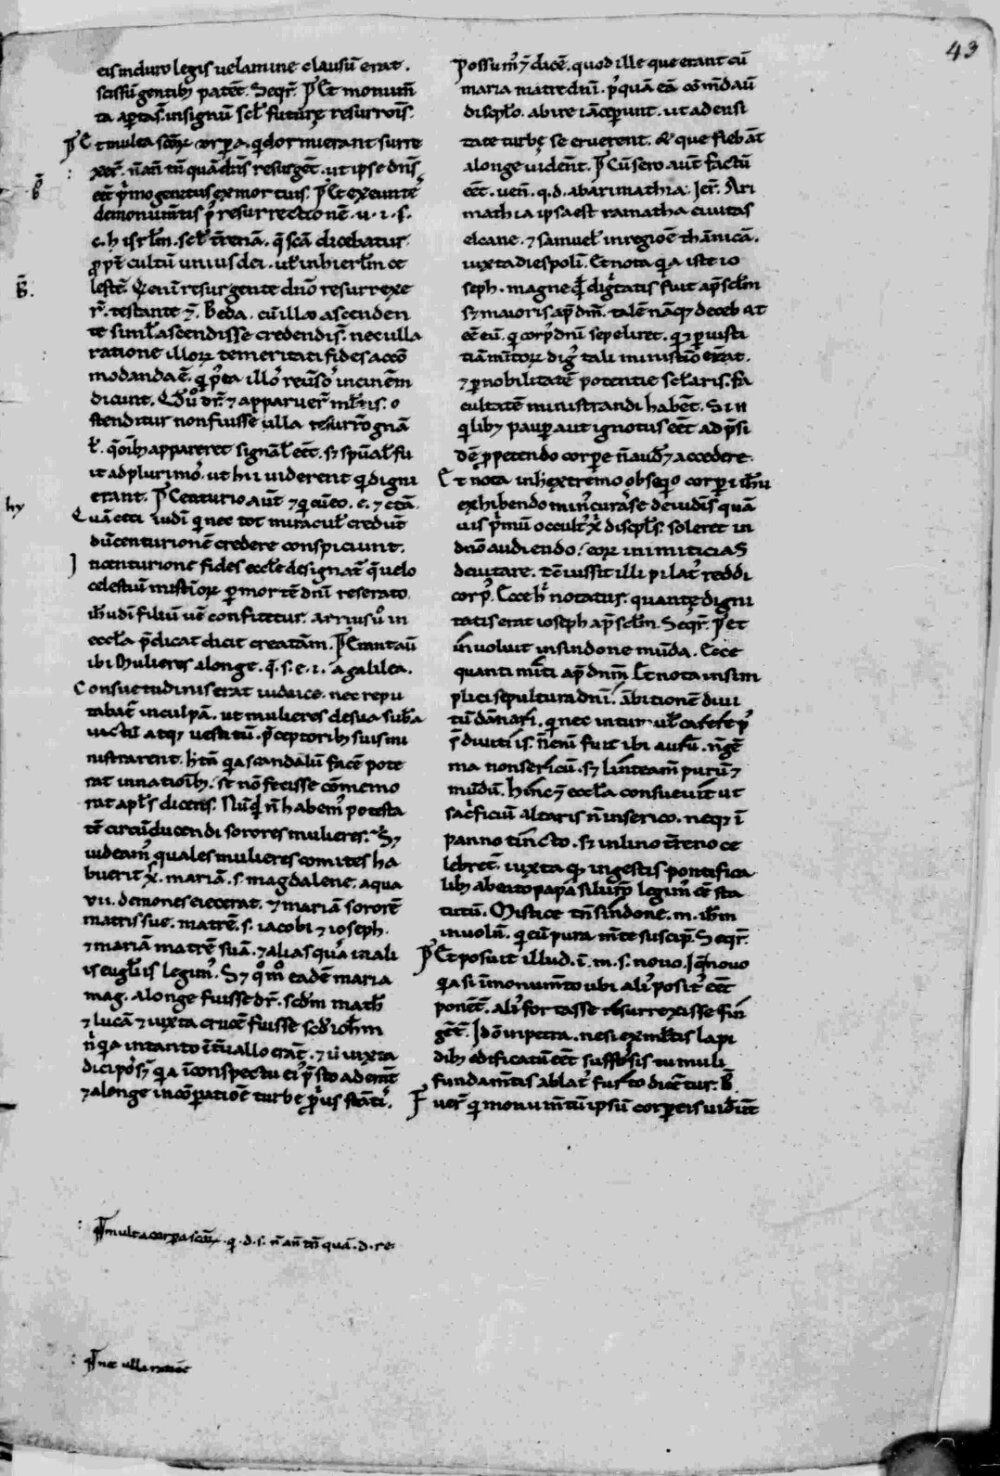 43
eis in duro legis uelamine clausū erat.
scissū gentib; patēt. Seqr̄. Et monum̄
ta aperta s̄. in signū scl̄ futurę resurrōis.
Et multa scōꝝ corpora. q̇ dormierant surre
xer̄. n̄ an̄ tn̄ quā dn̄s resurgēt. ut ipse dn̄s
eēt p̄mogenitus ex mortuis. Et exeuntē
de monum̄tis p̄ resurrectionē. u. i. s.
c. h isrl̄m. scl̄ t̄renā. q̄ scā dicebatur
ꝓpt̄ cultū unius dei. ul̄ in hierl̄m ce
lestē. Cenī resurgente dn̄o resurrexe
r̄. testante
Beda. cū illo ascenden
te simul̄ ascendisse credendi s̄. nec ulla
ratione illoꝝ temeritati fides accō
modanda ē. q̇ p̄ea illoꝝ reūsoꝝ in cinerē
dicunt.
dr̄ ⁊ apparuer̄ ml̄tis. o
stenditur non fuisse ulla resurrō
q̇ oīb; appareret
s; fu
it ad plurimoꝝ. ut hii uiderent q̇ digni
erant. Centurio aut̄ ⁊ q̇ cū eo. e. ⁊ cetā.
hy
iudī q̇ nec tot miracul̄ credūt
dū centurionē credere conspiciunt.
In centurione fides eccl̄e designat̄ q̄ uelo
celestiū mistioꝝ p̄ mortē dn̄i reserato
ih̄m dī filiū uē confitetur. arrius ū in
eccl̄a p̄dicat dicit creatām. Erant aū
ibi Mulieres a longe. q̄. s. e. i. a galilea.
Consuetudinis erat iudaice. nec repu
tabat̄ in culpā. ut mulieres de sua sub̄a
uictū atq; uestitū. p̄ceptorib; suis mi
nistrarent. h tn̄ q̇a scandalū facē pote
rat in nationib;. se nō fecisse cōmemo
rat apl̄s dicens. Nūq̇d n̄ habem̄ potesta
tē circūducendi sorores mulieres. S;
uideam̄ quales mulieres comites ha
buerit x̄. mariā. s. magdalene. a qua
vii. demones eiecerat. ⁊ mariā sororē
matris sue. matrē. s. iacobi ⁊ ioseph.
⁊ mariā matrē suā. ⁊ alias quas in ali
is eugl̄iis legim̄. S; q̄m̄ eadē maria
mag. a longe fuisse dr̄. scd̄m math̄
⁊ lucā ⁊ iuxta crucē fuisse scd̄ ioh̄m
n̄ q̇a in tanto īt̄uallo erāt. ⁊ ii iuxta
dici
q̇a ī conspectu ei p̄sto aderāt
⁊ a longe in cōparationē turbe p̄us stāti.
Possum̄ ⁊ dicē. quod ille que erant cū
maria matre dn̄i. p̄quā eā cōm̄dauit
discipl̄o. abire iā ceperunt. ut a densi
tate turbę se eruerent. ⁊ que fieb̄āt
a longe uidēnt. Cū sero aut̄ factū
eēt. uen̄. q. d. ab arimathia. Jer̄. Ari
mathia ipsa est ramatha ciuitas
elcane. ⁊ samuel̄ in regiōe thānicā.
iuxta diespolī. Et nota q̇a iste io
seph. magne q̇d dignitatis fuit ap̄ scl̄m
s; maioris ap̄ dm̄. talē nāq; deceb̄at
eē eū. q̇ corp̄ dn̄i sepeliret. q; p̄ uisti
tiā
diḡ tali ministrio erat.
⁊ p̄ nobilitatē potentie scl̄aris. fa
cultatē ministrandi habēt. Si n̄
q̇lib; paup̄ aut ignotus eēt ad p̄si
dē p̄ petendo corpore n̄ aud̄ accedere.
Et nota in h extremo obseq̇o corp̄i ih̄u
exhibendo min̄ curasse de iudīs quā
uis p̄mū occult̄ x̄ discipl̄s. soleret in
dn̄o audiendo. eoꝝ inimiticias
deuitare. Tē iussit illi pilat̄ reddi
corp̄. Ecce h̄ notatur. quantę digni
tatis erat ioseph ap̄ scl̄m. Seqr̄. Et
inuoluit in sindone mūda. Ecce
quanti m̄ti ap̄ dnm̄. Et nota in sim
plici sepultura dn̄i. ābitionē diui
tū dānari. q̇ nec in tumul̄ carere p̄
nt̄ diuitiis. n̄ enī fuit ibi aurū. n̄ gē
ma non sericū. s; linteam̄ purū ⁊
mūdū. hinc ⁊ eccl̄a consueuit ut
sac̄ficiū altaris n̄ in serico. neq; ī
panno tincto. s; in lino t̄reno ce
lebret̄. iuxta q; in gestis pontifica
lib; a beato papa siluestro legim̄ eē sta
tutū. Mistice tn̄ sindone. m. ih̄m
inuoluit. q̇ eū pura m̄te suscip̄. Seqr̄.
Et posuit illud. ī. m. s. nouo. Jō nouo
q̇a si ī monum̄to ubi ali posit̄ eēt
ponēt. ali fortasse resurrexisse fin
gēt̄. Jdō in petra. ne si ex ml̄tis lapi
dib; edificatū eēt suffossis tumuli
fundam̄tis ablat̄ furto dicētur. B̄.
Fuer̄ q̇ monum̄tū ipsū corpore is uiderūt
multa corpora scōꝝ. q. d. s. n̄ an̄ tn̄ quā. d. re
nec ulla ratiōe